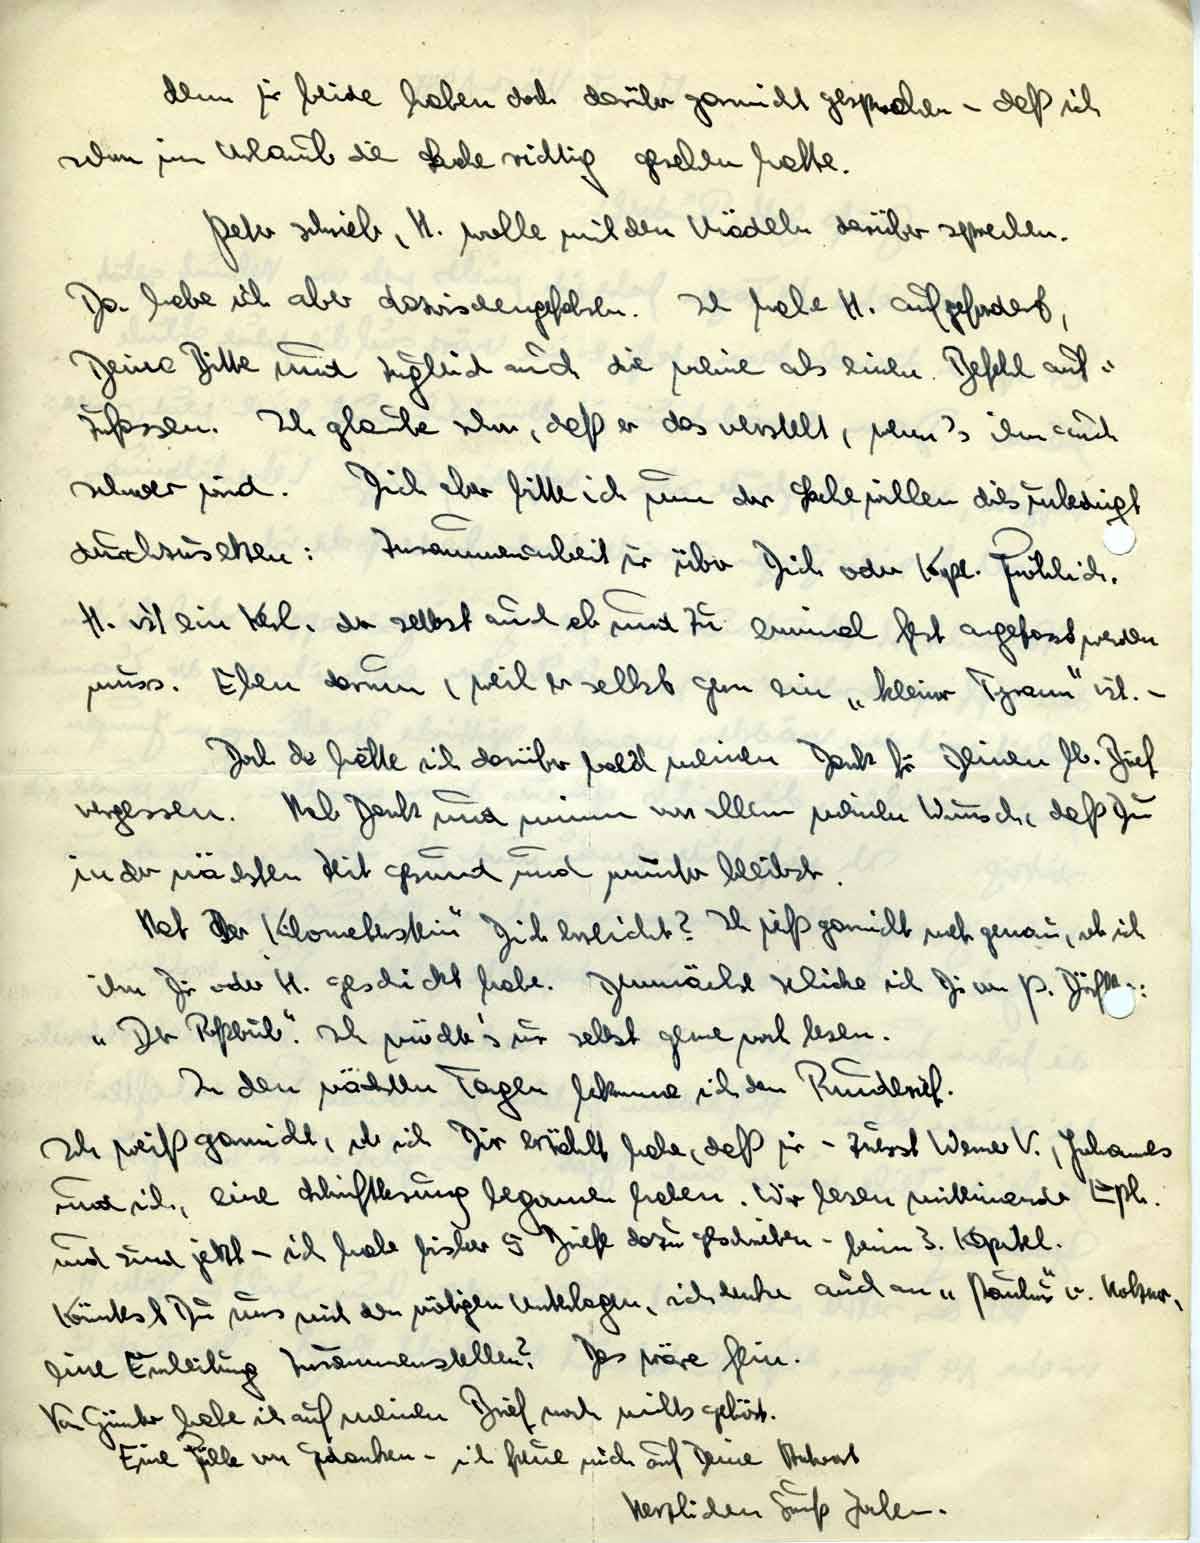 denn wir beide haben doch darüber garnicht gesprochen – daß ich
schon im Urlaub die Sache richtig gesehen hatte.
Peter schrieb, H. wolle mit den Mädeln darüber sprechen.
Da habe ich aber dazwischengefahren. Ich habe H. aufgefordert,
Deine Bitte und zugleich auch die meine als einen Befehl auf-
zufassen. Ich glaube schon, daß er das versteht, wenn's ihm auch
schwer wird. Dich aber bitte ich um der Sache willen dies unbedingt
durchzusetzen: Zusammenarbeit nur über Dich oder Kpl. Fröhlich.
H. ist ein Kerl, der selbst auch ab und zu einmal fest angefasst werden
muss. Eben darum, weil er selbst gern ein „kleiner Tyrann" ist. –
Doch da hätte ich darüber bald meinen Dank für Deinen lb. Brief
vergessen. Hab Dank und nimm vor allem meinen Wunsch, daß Du
in der nächsten Zeit gesund und munter bleibst.
Hat „Der Kilometerstein" Dich erreicht? Ich weiß garnicht mehr genau, ob ich
ihn Dir oder H. geschickt habe. Demnächst schicke ich Dir von P. Dörfler:
„Der Roßbub". Ich möchte's nur selbst gerne noch lesen.
In den nächsten Tagen bekomme ich den Rundbrief.
Ich weiß garnicht, ob ich Dir erzählt habe, daß wir – zuerst Werner V., Johannes
und ich, eine Schriftlesung begonnen haben. Wir lesen miteinander Eph.
und sind jetzt – ich habe bisher 5 Briefe dazu geschrieben – beim 3. Kapitel.
Könntest Du uns mit den nötigen Unterlagen, ich denke auch an „Paulus" v. Holzner,
eine Einleitung zusammenstellen? Das wäre fein.
Von Günter habe ich auf meinen Brief noch nichts gehört.
Eine Fülle von Gedanken – ich freue mich auf Deine Antwort
Herzlichen Gruß